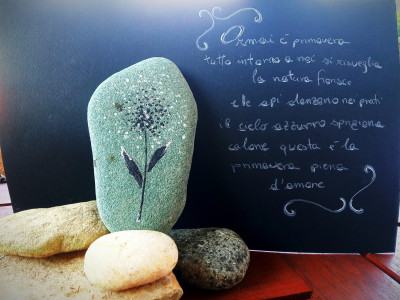 Ormai è primavera
tutto intorno a noi si risveglia
la natura fiorisce
e le api danzano nei prati
il cielo azzurro sprigiona
calore questa è la
primavera piena
d'amore